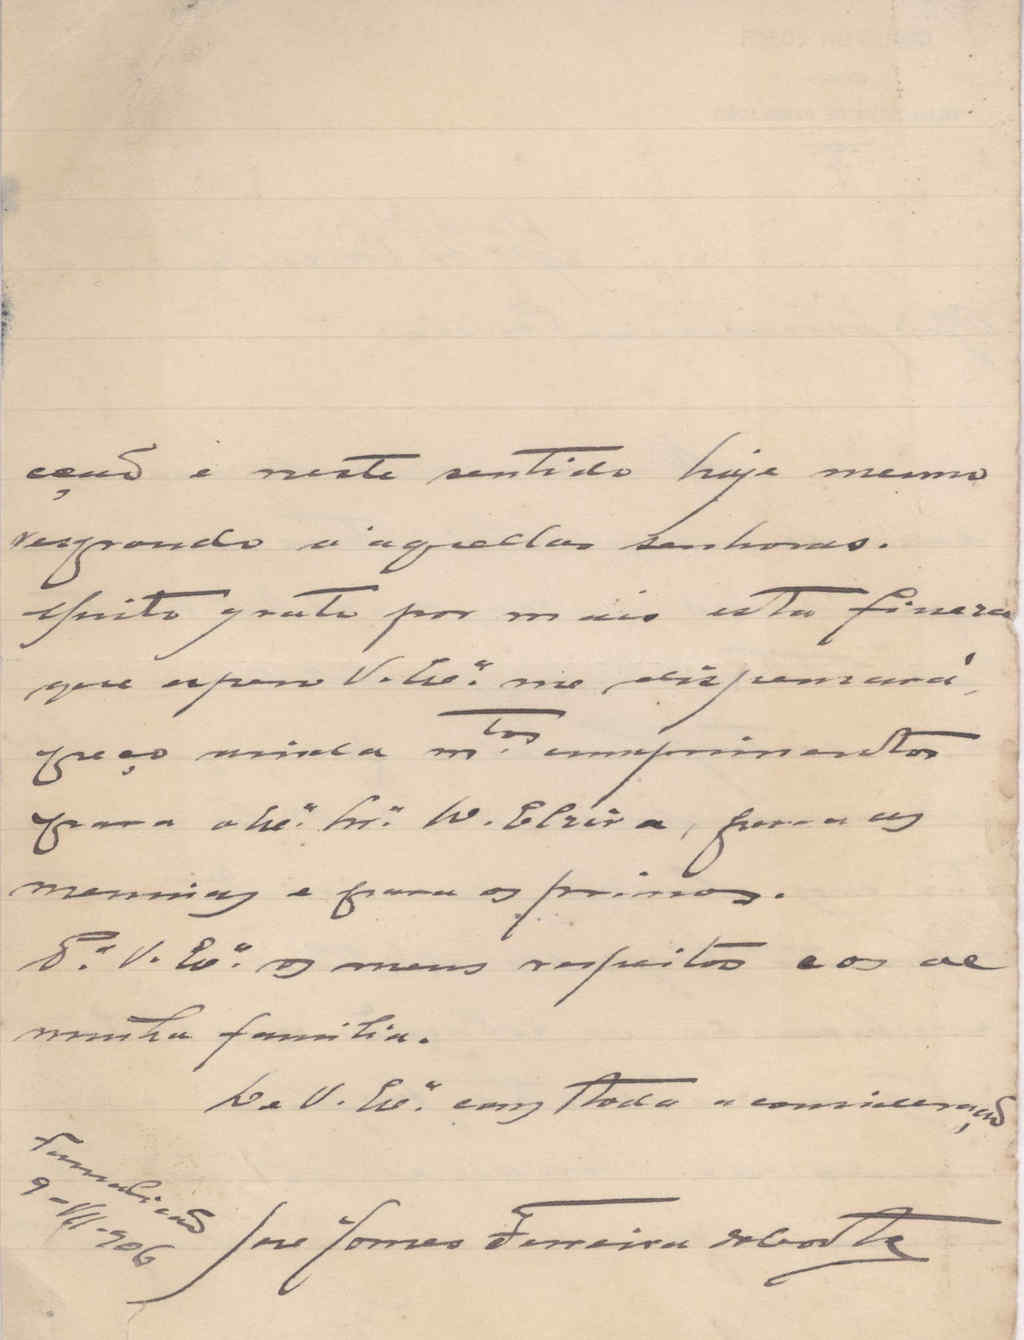 cção e neste sentido hoje mesmo
respondo a aquellas senhoras.
Muito grato por mais esta fineza
que espero V. Ex.ª me dispensará,
peço ainda m.tos cumprimentos
para a Ex.ª Sr.ª D. Elzira, para as
meninas e para os primos.
P.ª V. Ex.ª os meus respeitos e os de
minha familia.
De V. Ex.ª com toda a consideração
Famalicão
9-VII-906
José Gomes Ferreira da Costa